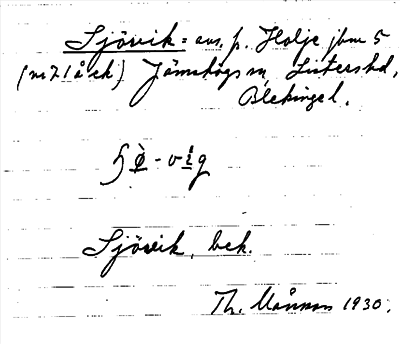 Sjövik = avs. p. Holje jbnr 5
(nr 71 å ek) Jämshögs sn, Listers hd,
Blekinge l.
Sjövik, bek.
Th. Månsson 1930.